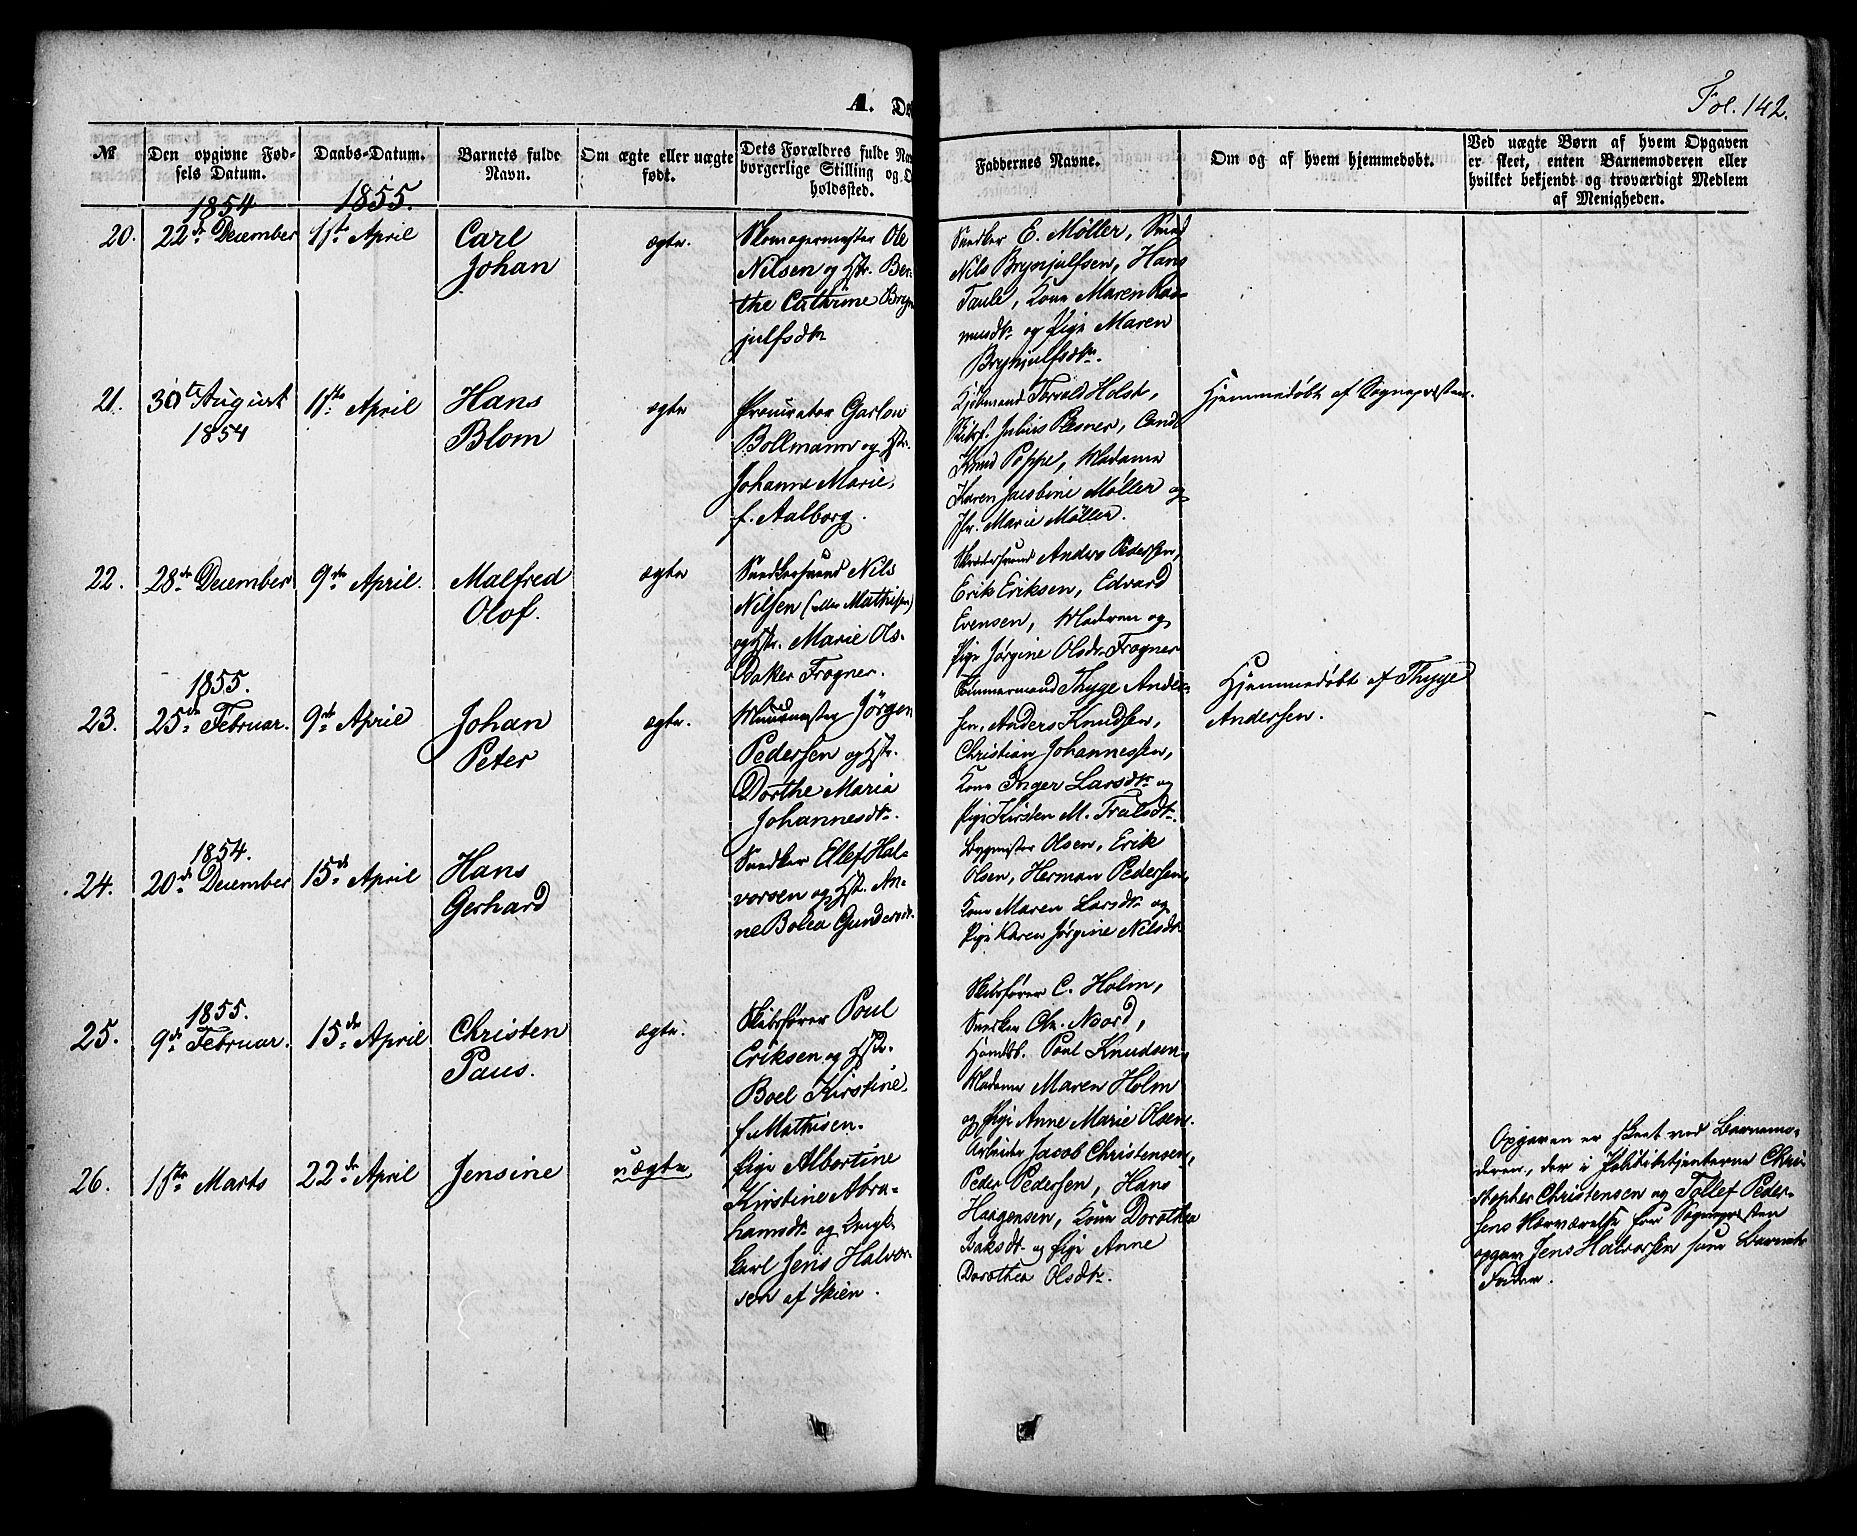 A. De
Fol. 142.
№
Den opgivne Fød-
sels Datum.
Daabs-Datum.
Barnets fulde
Navn.
Om ægte eller uægte
født.
Dets Forældres fulde Nav
borgerlige Stilling og O
holdssted.
Faddernes Navne.
Om og af hvem hjemmedøbt.
Ved uægte Børn af hvem Opgaven
er skeet, enten Barnemoderen eller
hvilket bekjendt og troværdigt Medlem
af Menigheden.
1854
1855.
20.
22de December
1ste April
Carl
Johan
ægte.
Skomagermester Ole
Nilsen og Hstr. Ber-
the Cathrine Bryn
julfsdtr
Snedker E. Møller, Smed
Nils Brynjulfsen, Hans
Taule, Kone Maren Ras-
musdtr og Pige Maren
Brynjulfsdtr.
21.
30te August
1854
1ste April
Hans
Blom
ægte
Procurator Carlou
Bollmann og Hstr.
Johanne Marie,
f. Aalborg.
Kjøbmand Torvald Holst,
Skibsf. Julius Plesner, Cand.
Knud Poppe, Madame
Karen Jacobine Møller og
Jfr. Marie Møller.
Hjemmedøbt af Sognepresten.
22.
28de December
9de April.
Malfred
Olof.
ægte
Snedkersvend Nils
Nilsen (eller Mathisen)
og Hstr. Marie Ols-
Daker Frogner.
Anders Pedersen,
Erik Eriksen, Edvard
Evensen, Moderen og
Pige Jørgine Olsdtr Frogner
1855.
23.
25de Februar.
9de April
Johan
Peter
ægte.
Jørgen
Pedersen og Hstr.
Dorthe Maria
Johannesdtr.
Tømmermand Thyge Ander-
sen, Anders Knudsen,
Christian Johannessen,
Kone Inger Larsdtr og
Pige Kirsten M. Trulsdtr.
Hjemmedøbt af Thyge
Andersen.
1854.
24.
20de December
15de April
Hans
Gerhard
Snedker Ellef Hal-
vorsen og Hstr. An-
ne Bolea Gundersdtr
Bygmester Olsen, Erik
Olsen, Herman Pedersen,
Kone Maren Larsdtr og
Pige Karen Jørgine Nilsdtr
1855.
25.
9de Februar.
15de April
Christen
Paus.
ægte.
Skibsfører Poul
Eriksen og Hstr.
Boel Kirstine,
f. Mathisen.
Skibsfører C. Holm,
Snedker Chr. Noord,
Handelsb. Poul Knudsen,
Madame Maren Holm
og Pige Anne Marie Olsen.
26.
15de Marts
22de April
Jensine
uægte
Pige Albertine
Kirstine Abra-
hamsdtr og Ungk
karl Jens Halvor
sen af Skien.
Arbeider Jacob Christensen,
Peder Pedersen, Hans
Haagensen, Kone Dorothea
Isaksdtr og Pige Anne
Dorothea Olsdtr.
Opgaven er skeet ved Barnemo-
deren, der i Politibetjenterne Chri-
stopher Christensen og Tollef Peder-
sens Nærværelse for Sognepresten
opgav Jens Halvorsen som Barnets
Fader.